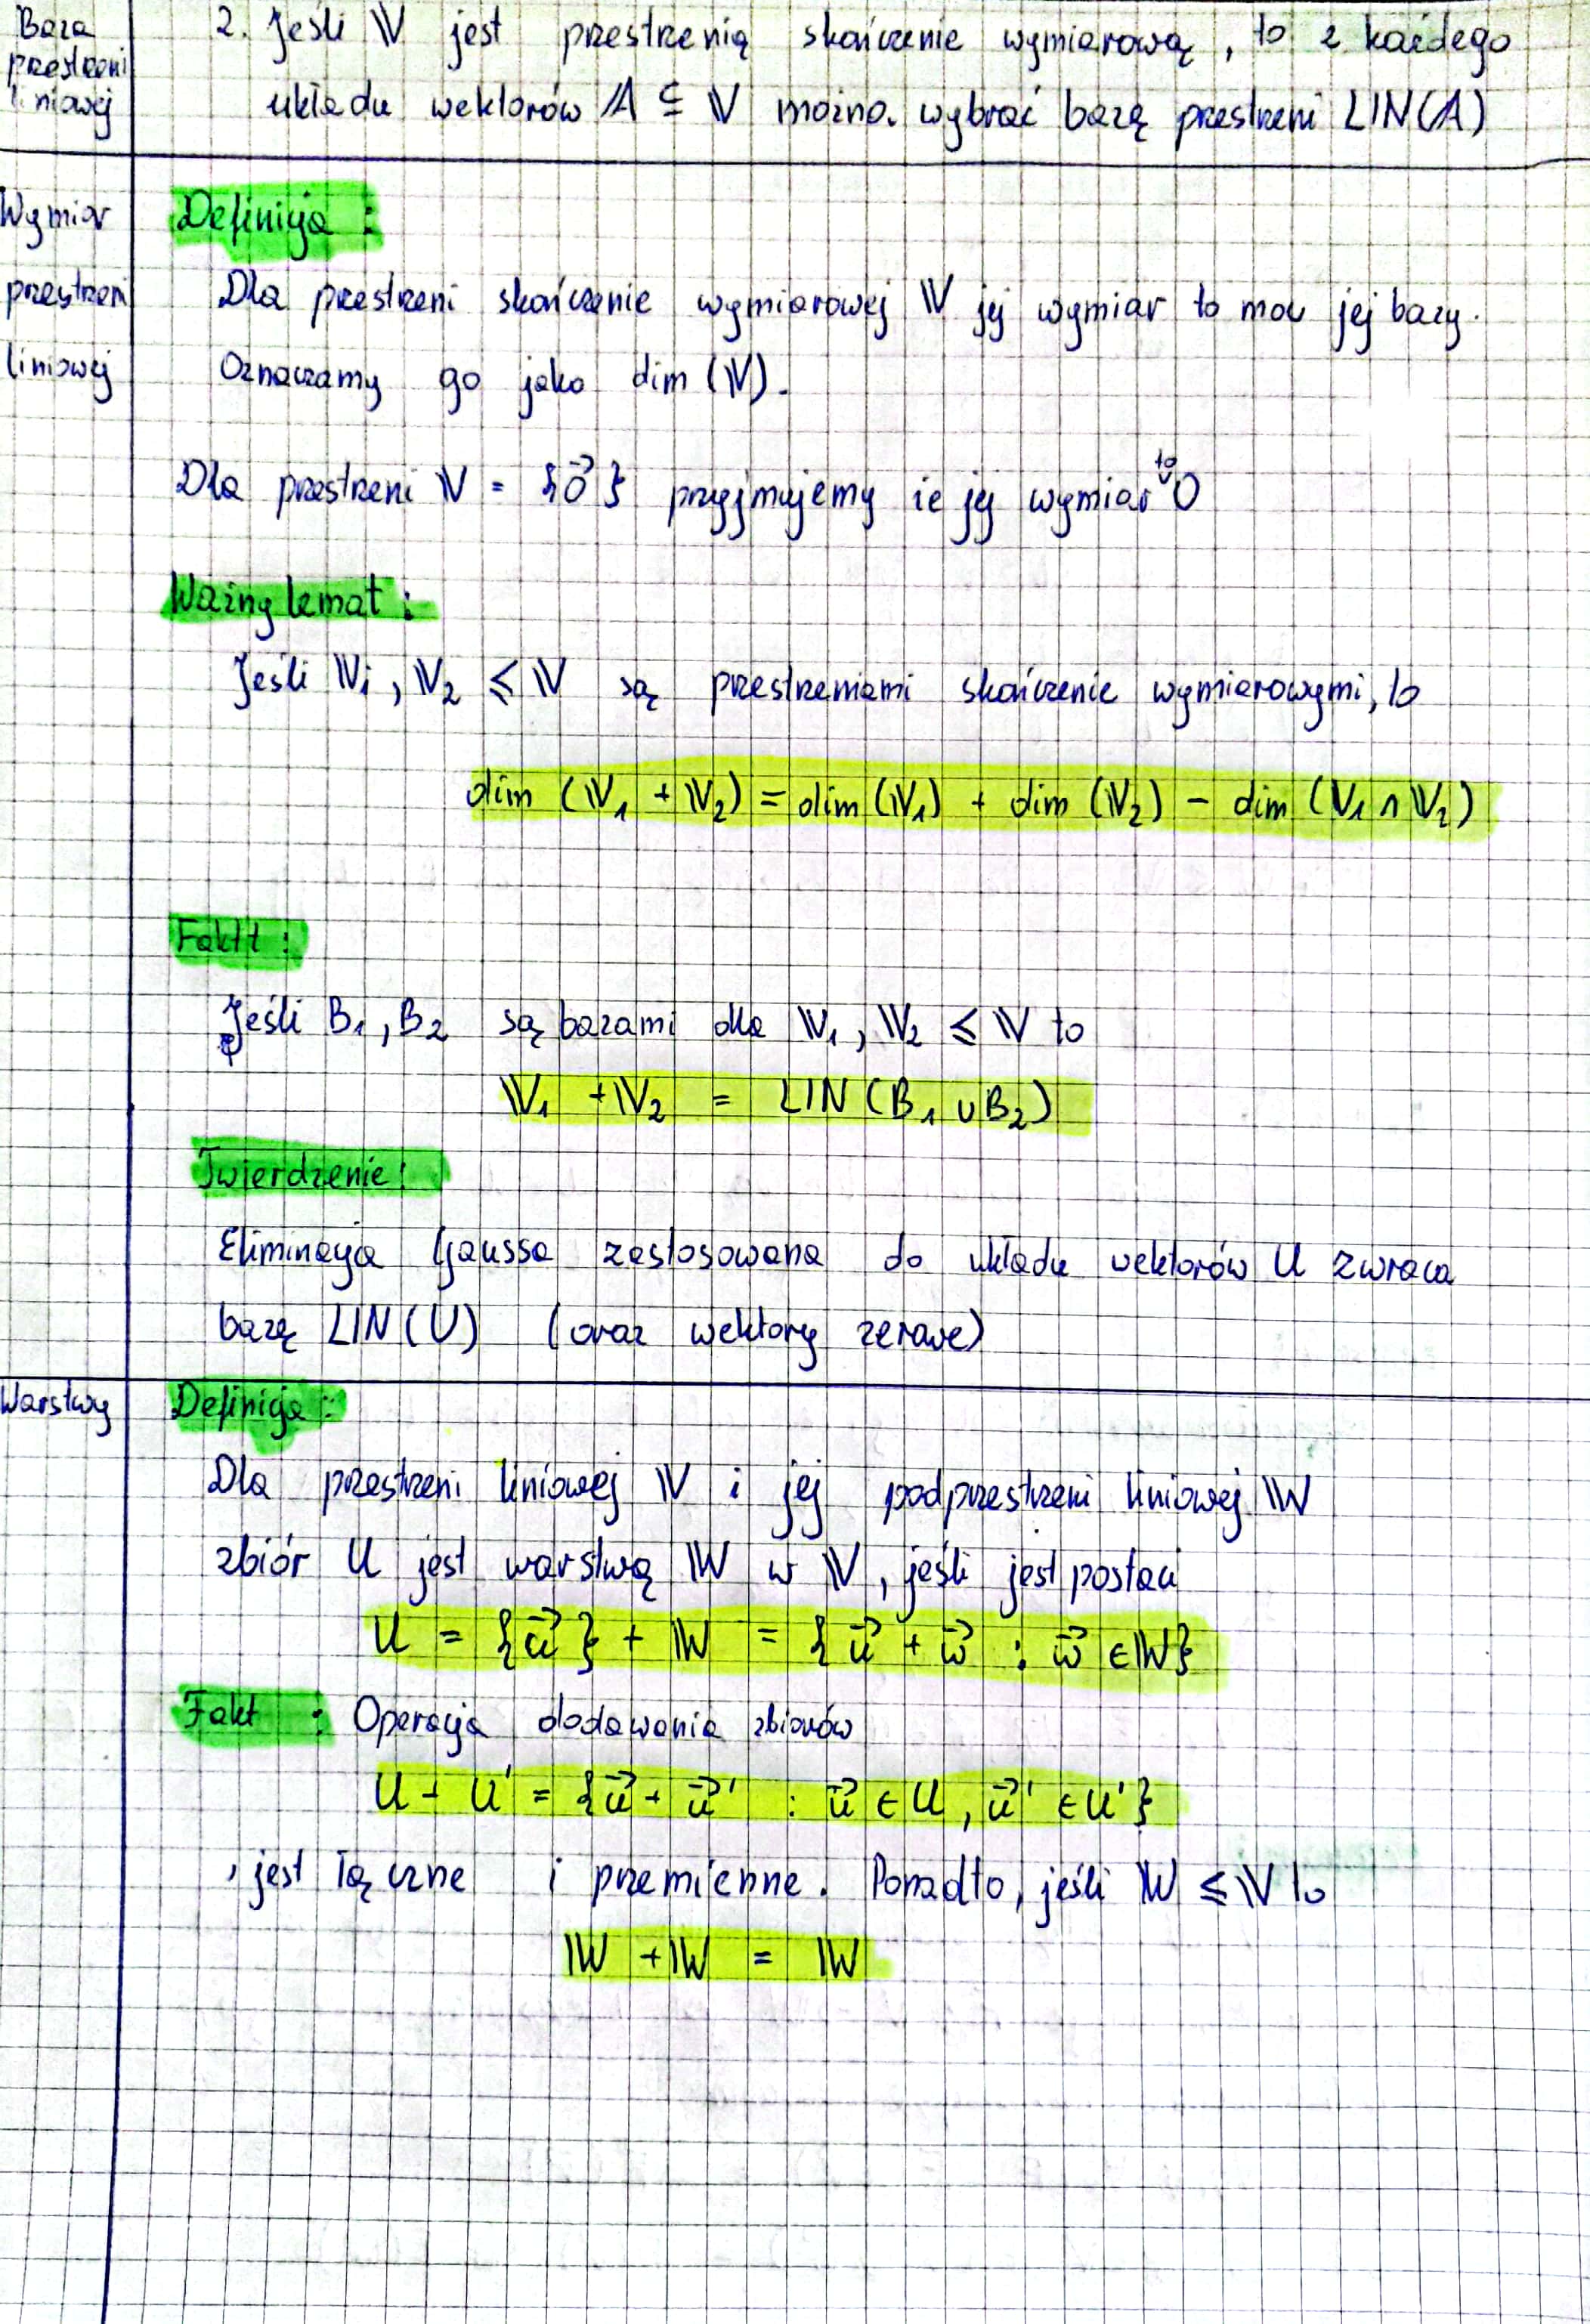 Baza
przestrzeni
liniowej
2. Jeśli 𝕍 jest przestrzenią skończenie wymiarową, to z każdego
układu wektorów A ⊆ 𝕍 można wybrać bazę przestrzeni LIN(A)
Wymiar
przestrzeni
liniowej
Definicja :
Dla przestrzeni skończenie wymiarowej 𝕍 jej wymiar to moc jej bazy.
Oznaczamy go jako dim (𝕍).
Dla przestrzeni 𝕍 = {0⃗} przyjmujemy że jej wymiar to 0
Ważny lemat :
Jeśli 𝕍₁, 𝕍₂ ⩽ 𝕍 są przestrzeniami skończenie wymiarowymi, to
dim (𝕍₁ + 𝕍₂) = dim (𝕍₁) + dim (𝕍₂) - dim (𝕍₁ ∩ 𝕍₂)
Faktt :
Jeśli B₁, B₂ są bazami dla 𝕍₁, 𝕍₂ ⩽ 𝕍 to
𝕍₁ + 𝕍₂ = LIN (B₁ ∪ B₂)
Twierdzenie :
Eliminacja Gaussa zastosowana do układu wektorów U zwraca
bazę LIN(U) (oraz wektory zerowe)
Warstwy
Definicja :
Dla przestrzeni liniowej 𝕍 i jej podprzestrzeni liniowej 𝕎
zbiór U jest warstwą 𝕎 w 𝕍, jeśli jest postaci
U = {u⃗} + 𝕎 = {u⃗ + w⃗ : w⃗ ∈ 𝕎}
Fakt : Operacja dodawania zbiorów
U + U' = {u⃗ + u⃗' : u⃗ ∈ U, u⃗' ∈ U'}
, jest łączne i przemienne. Ponadto, jeśli 𝕎 ⩽ 𝕍 to
𝕎 + 𝕎 = 𝕎